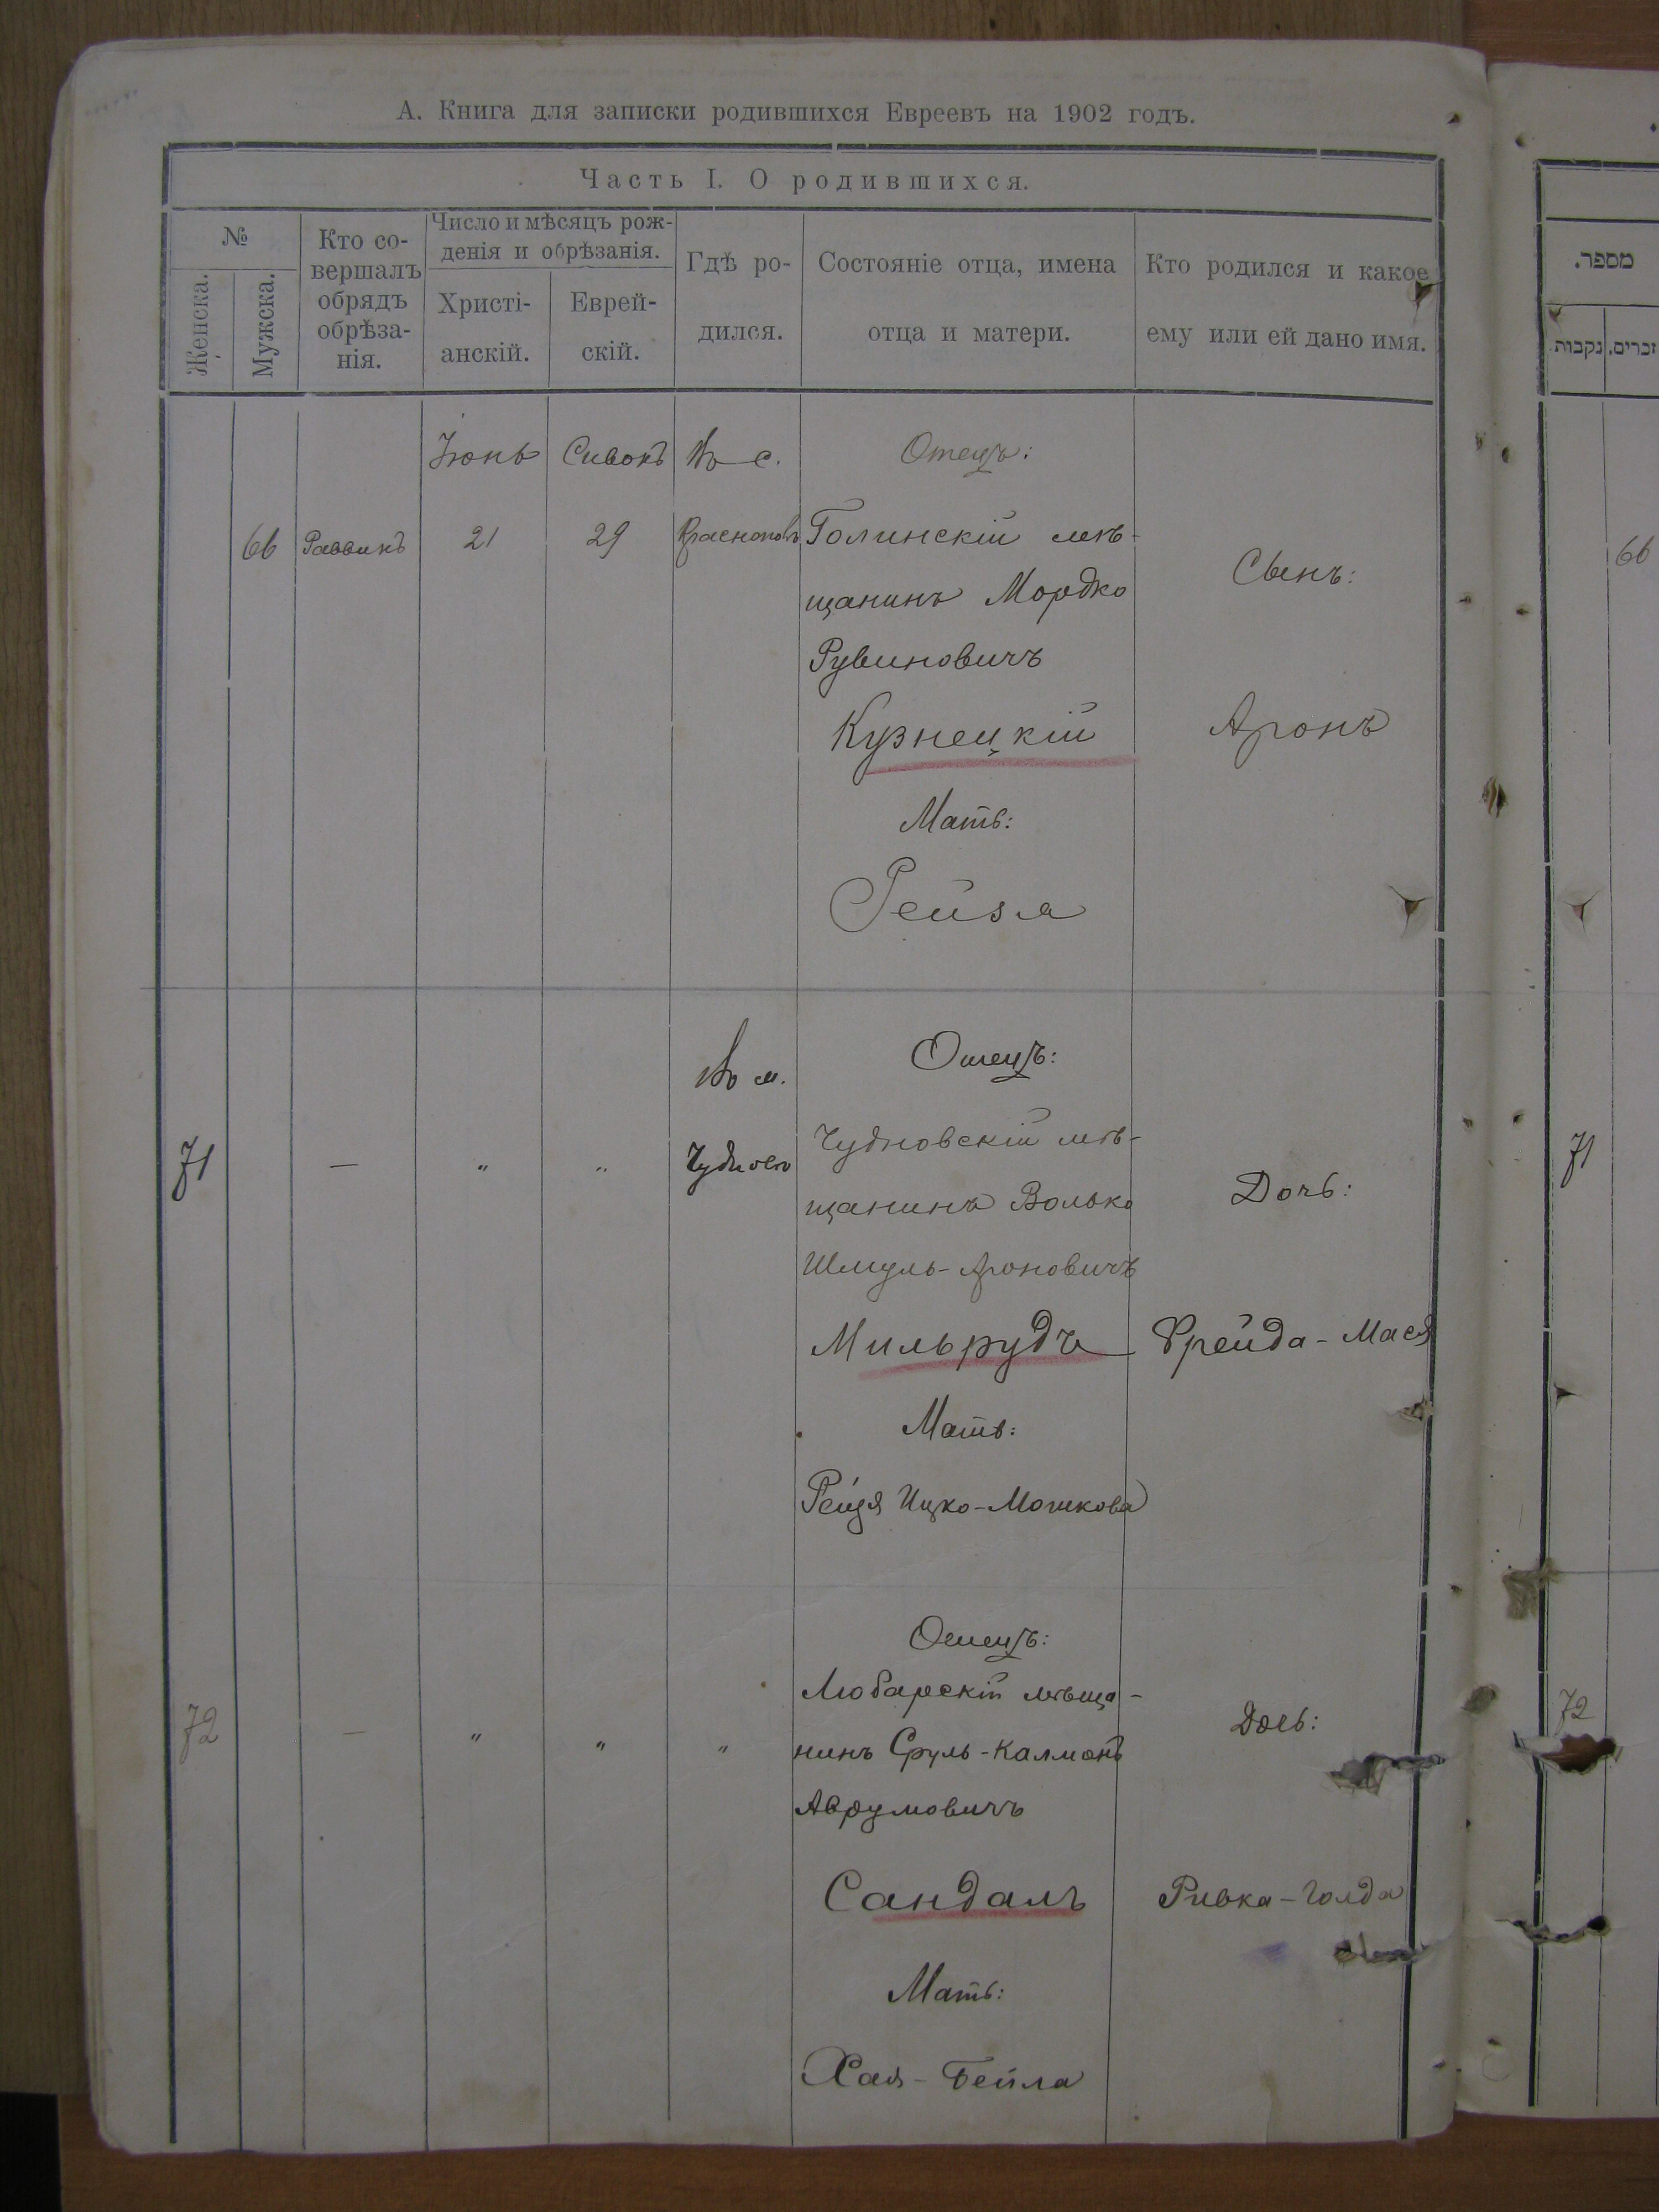 А. Книга для записки родившихся Евреевъ на 1902 годъ.
Часть I. О родившихся.
№
Женска.
Мужска.
Кто со-
вершалъ
обрядъ
обрѣза-
нія.
Число и мѣсяцъ рож-
денія и обрѣзанія.
Христі-
анскій.
Еврей-
скій.
Гдѣ ро-
дился.
Состояніе отца, имена
отца и матери.
Кто родился и какое
ему или ей дано имя.
Іюнь Сиванъ Въ с. Отецъ:
66 Раввинъ 21 29 Голинскій мѣ-
щанинъ Мордко
Рувиновичъ
Кузнецкій
Мать:
Рейзя
Сынъ:
Аронъ
Въ м. Отецъ:
71 — " " Чудновъ Чудновскій мѣ-
щанинъ Волько
Шмуль-Ароновичъ
Мильрудъ
Мать:
Рейзя Ицко-Мошкова
Дочь:
Фрейда-Мася
Отецъ:
72 — " " " Любарскій мѣща-
нинъ Сруль-Калманъ
Аврумовичъ
Сандалъ
Мать:
Хая-Бейла
Дочь:
Ривка-Голда
מספר.
נקבות
זכרים.
66
71
72